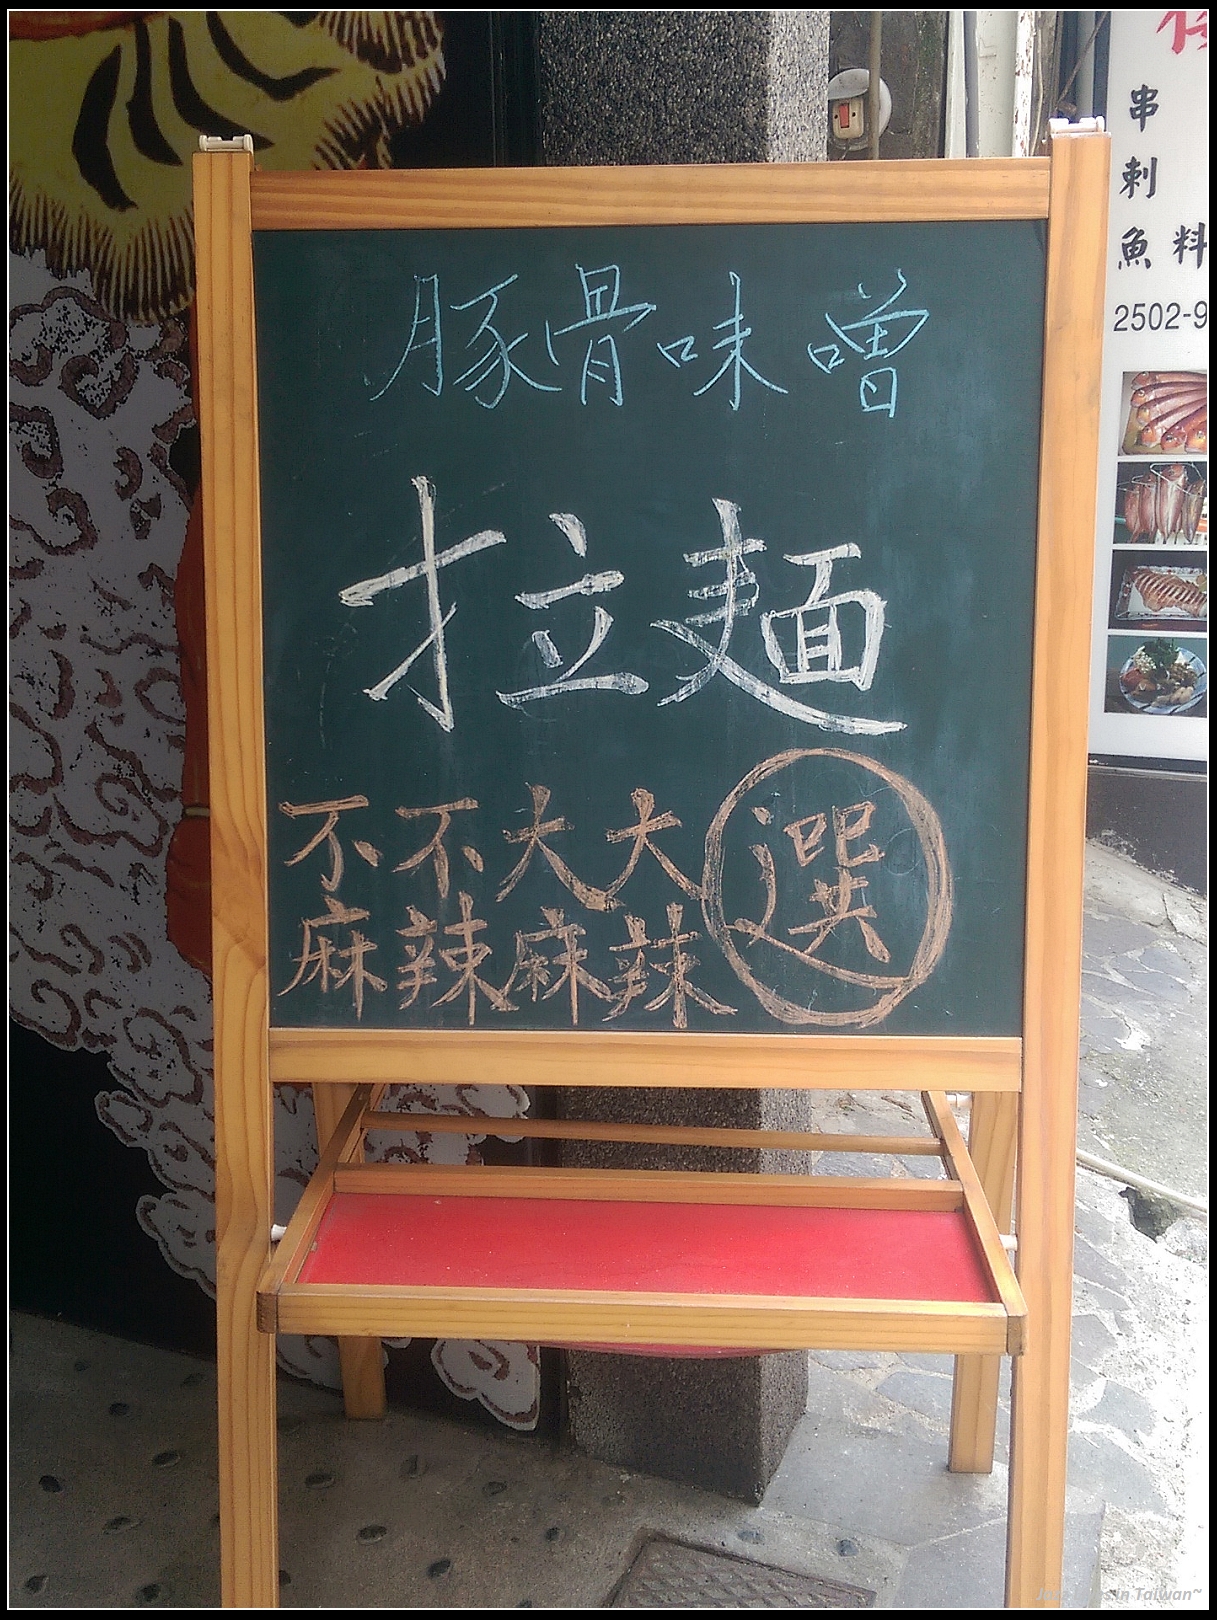 豚骨味噌
拉麵
不不大大
麻辣麻辣
選
串
刺
魚料
2502-9
in Taiwan~